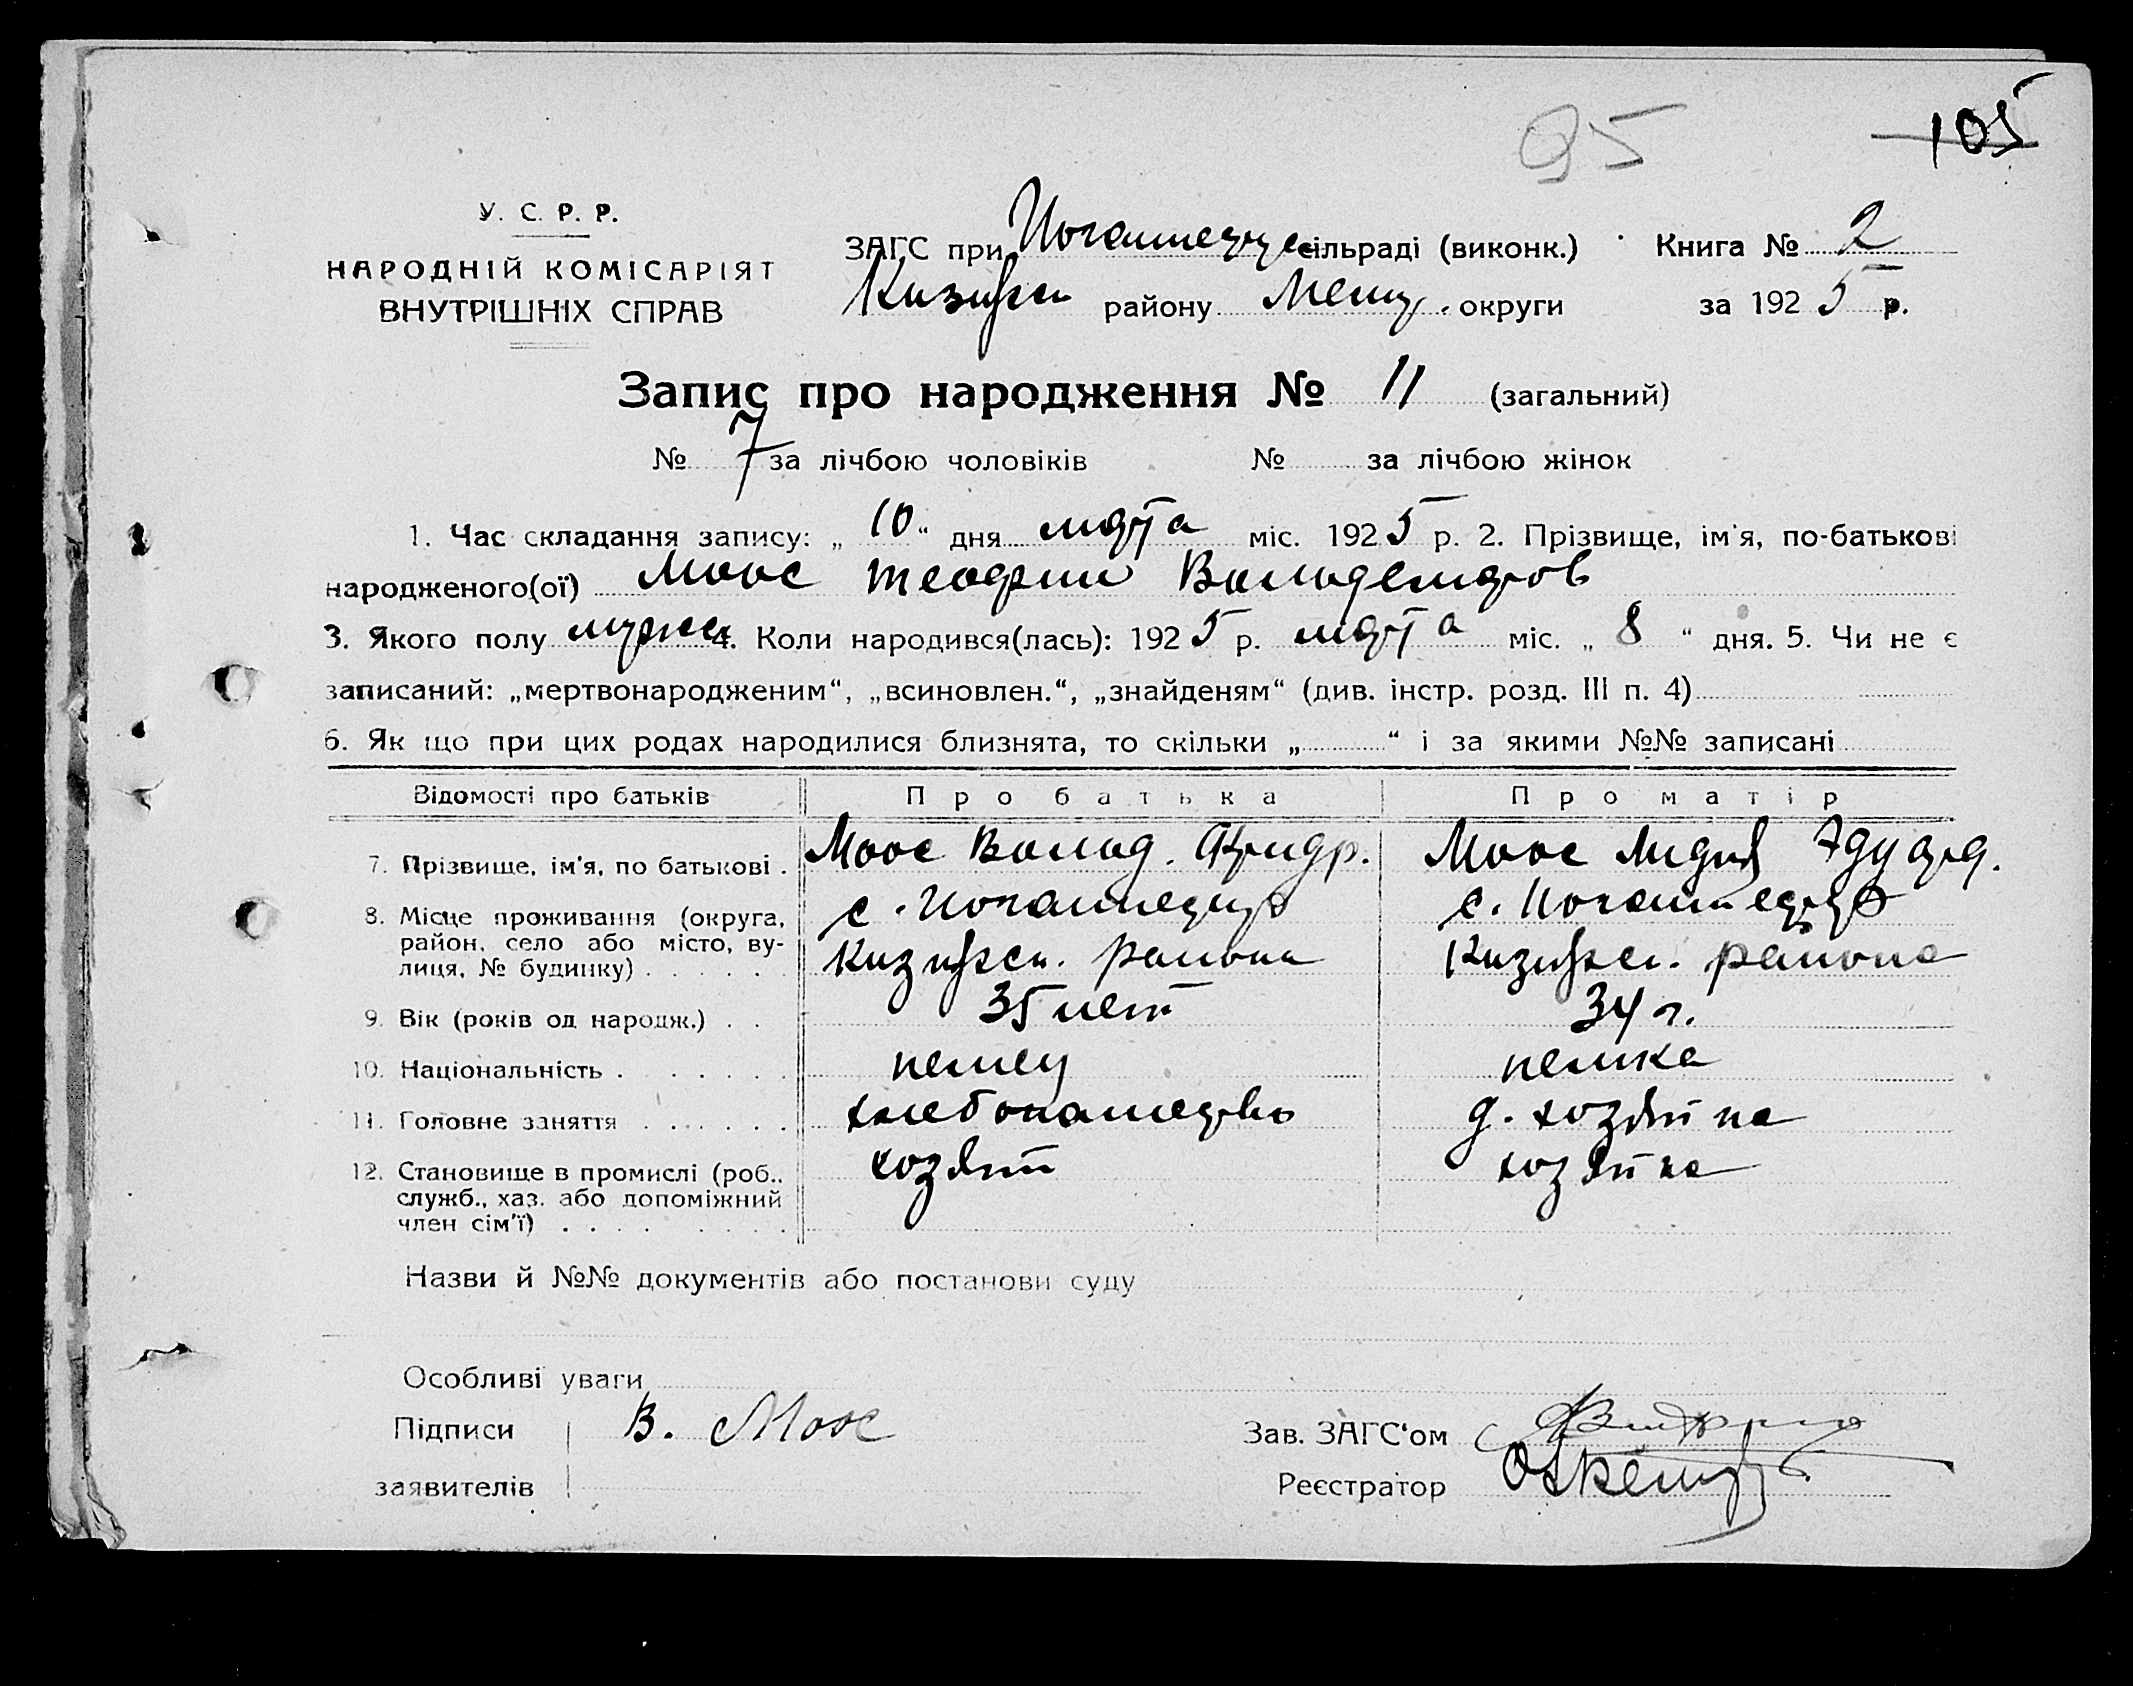 95 105
У. С. Р. Р.
НАРОДНІЙ КОМІСАРІЯТ
ВНУТРІШНІХ СПРАВ
ЗАГС при сільраді (виконк.) Книга № 2
району округи за 1925 р.
Запис про народження № 11 (загальний)
№ 7 за лічбою чоловіків № за лічбою жінок
1. Час складання запису: „ 10 “ дня марта міс. 1925 р. 2. Прізвище, ім'я, по-батькові
народженого(ої) Моос Вальдемаров
3. Якого полу мужск 4. Коли народився(лась): 1925 р. марта міс. „ 8 “ дня. 5. Чи не є
записаний: „мертвонародженим“, „всиновлен.“, „знайденям“ (див. інстр. розд. III п. 4)
6. Як що при цих родах народилися близнята, то скільки „ “ і за якими №№ записані
Відомості про батьків Про батька Про матір
7. Прізвище, ім'я, по батькові . Моос Валод. Фридр. Моос Лидия Эдуард.
8. Місце проживання (округа, с. с.
район, село або місто, ву- района района
лиця, № будинку) . . . . .
9. Вік (років од народж.) . . 35 лет 34 г.
10. Національність . . . . . . немец немка
11. Головне заняття . . . . . . хлебопашець д. хозяйка
12. Становище в промислі (роб., хозяин хозяйка
служб., хаз. або допоміжний
член сім'ї) . . . . . . . .
Назви й №№ документів або постанови суду
Особливі уваги
Підписи В. Моос Зав. ЗАГС‘ом
заявителів Реєстратор